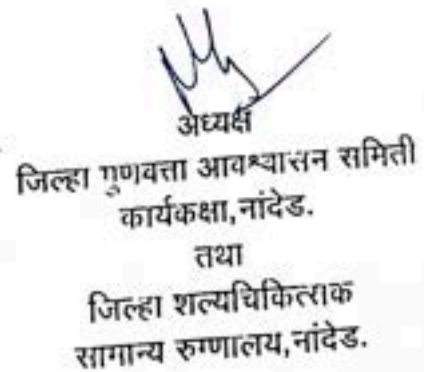 अध्यक्ष
जिल्हा गुणवत्ता आवश्यासन समिती
कार्यकक्षा,नांदेड.
तथा
जिल्हा शल्यचिकित्सक
सामान्य रुग्णालय,नांदेड.